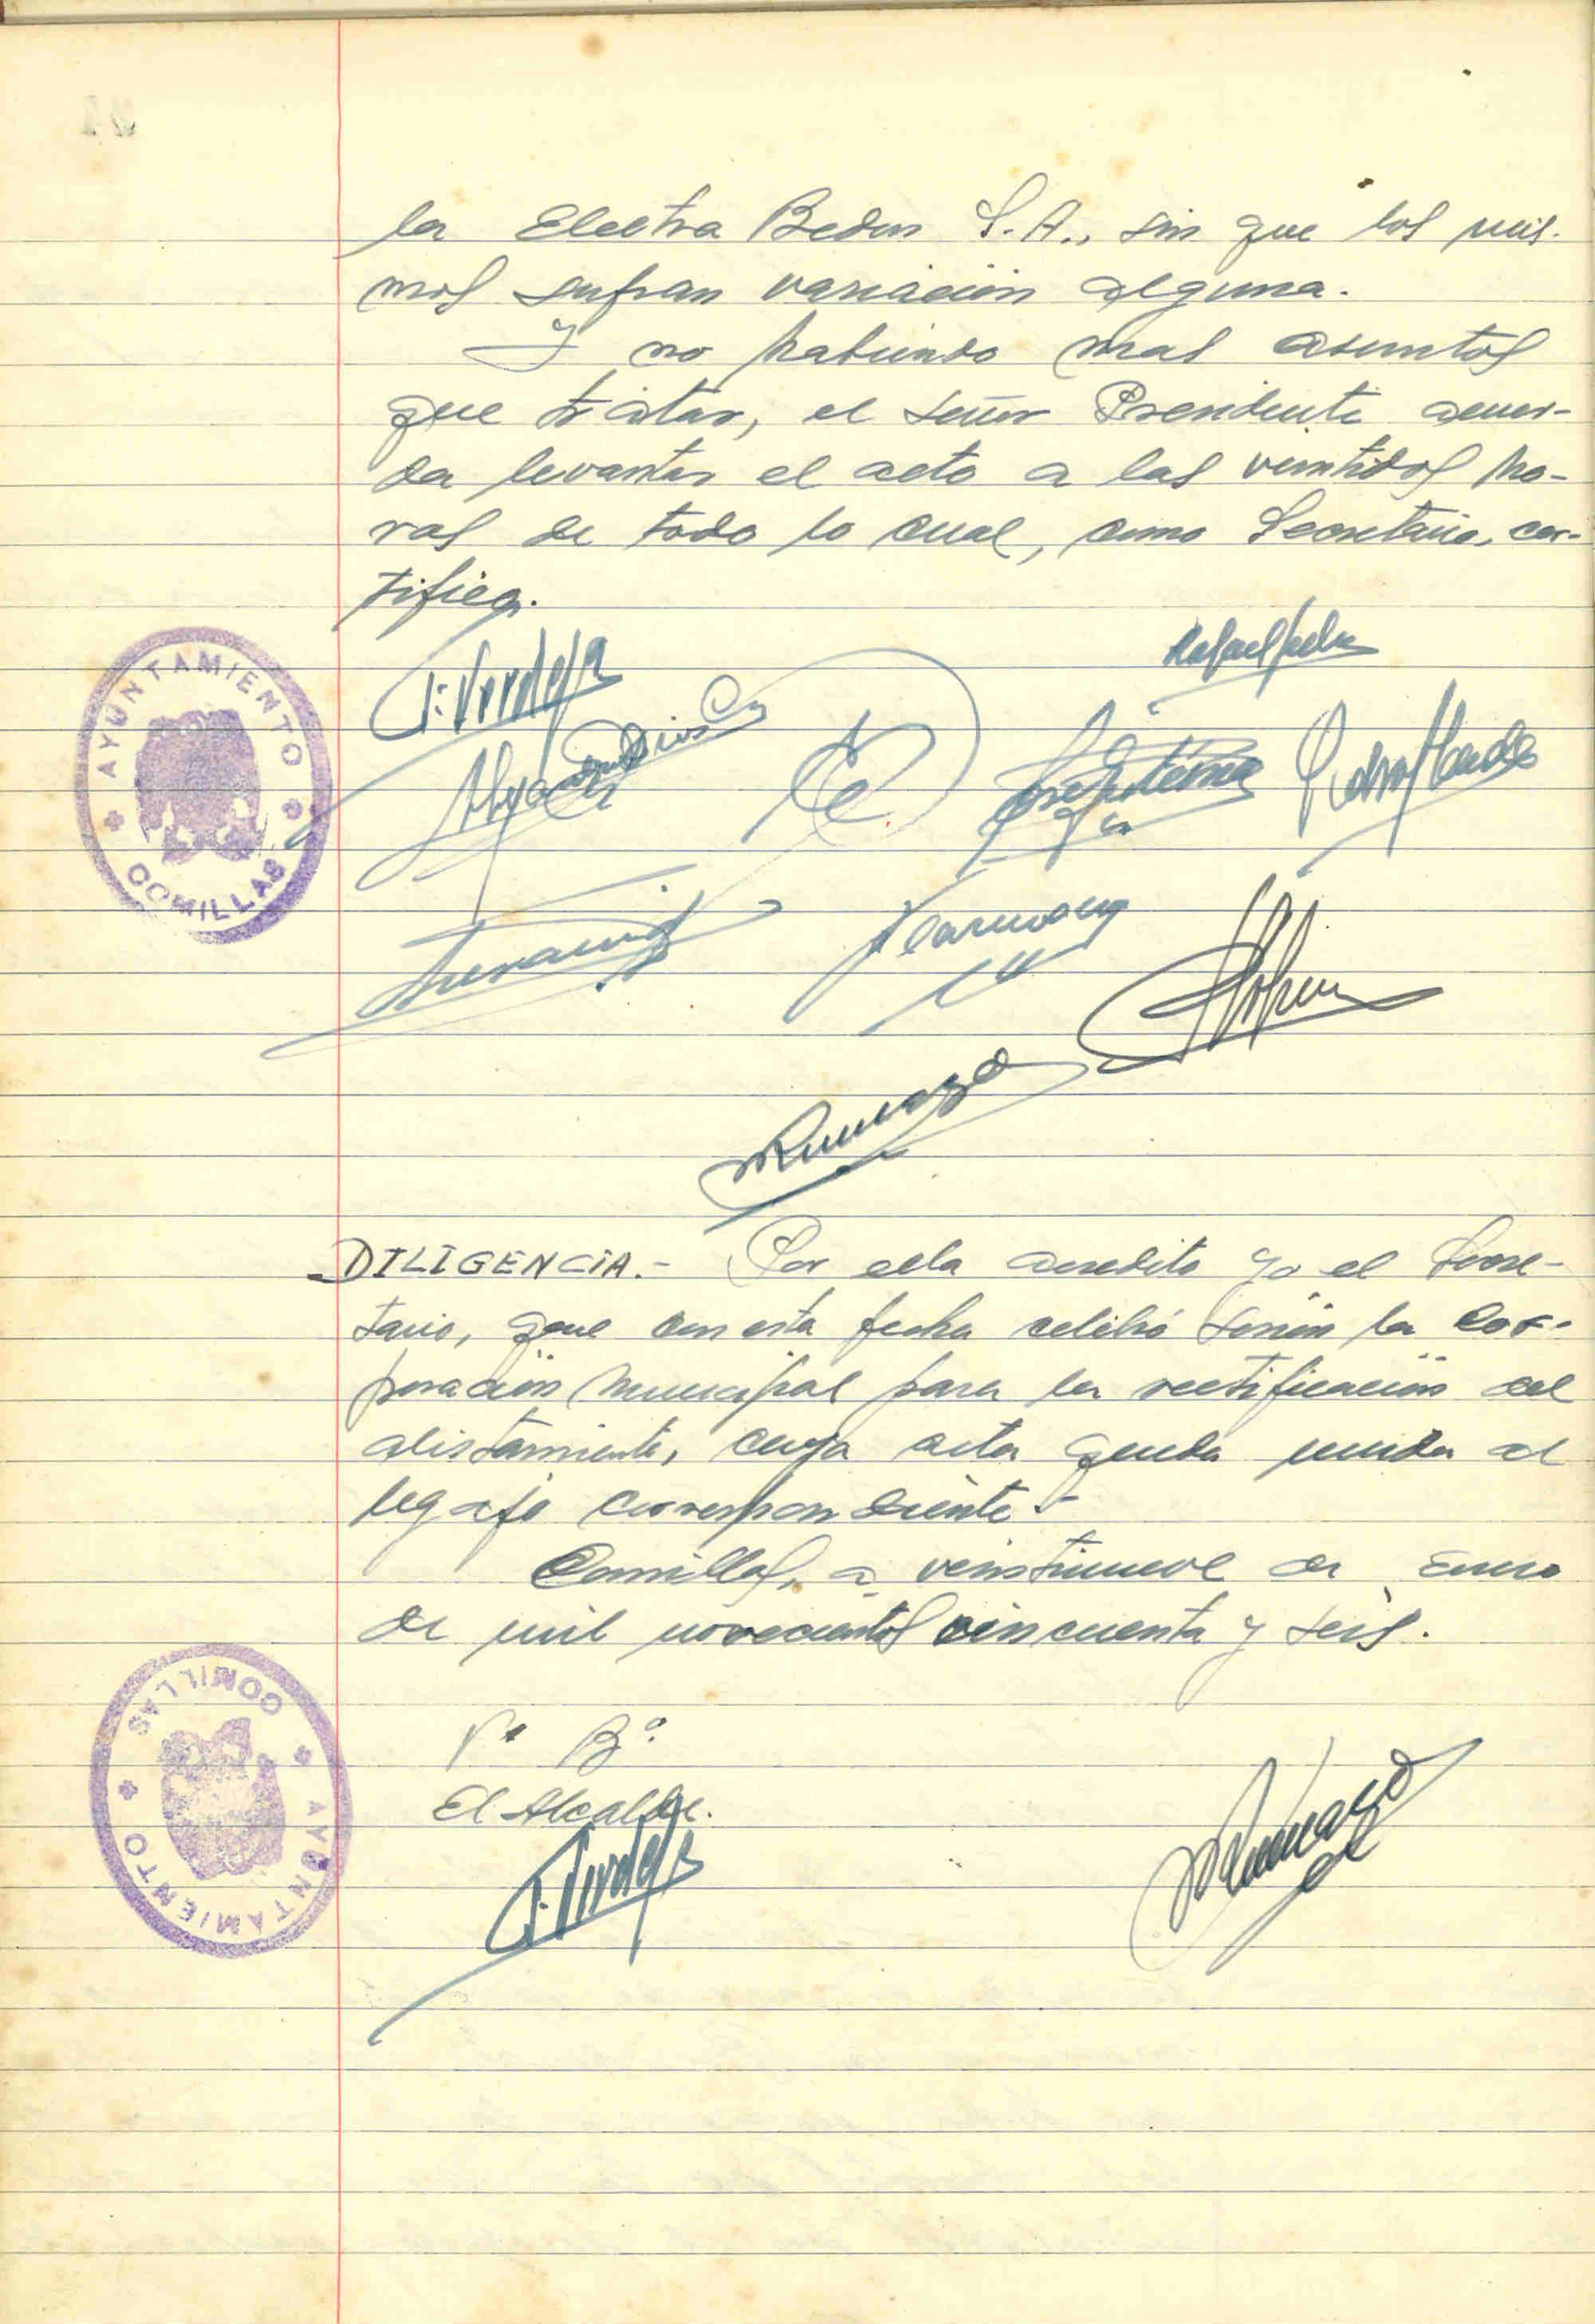 la Electra Bedon S.A., sin que los mis-
mos sufran variación alguna.
Y no habiendo mas asuntos
que tratar, el señor Presidente acuer-
da levantar el acto a las veintidos ho-
ras de todo lo cual, como Secretario, cer-
tifico.
AYUNTAMIENTO
COMILLAS
DILIGENCIA.- Por ella acredito yo el Secre-
tario, que con esta fecha celebró sesión la Cor-
poración Municipal para la rectificación del
alistamiento, cuya acta queda unida al
legajo correspondiente.-
Comillas, a veintinueve de Enero
de mil novecientos cincuenta y seis.
AYUNTAMIENTO
COMILLAS
Vº Bº
El Alcalde.